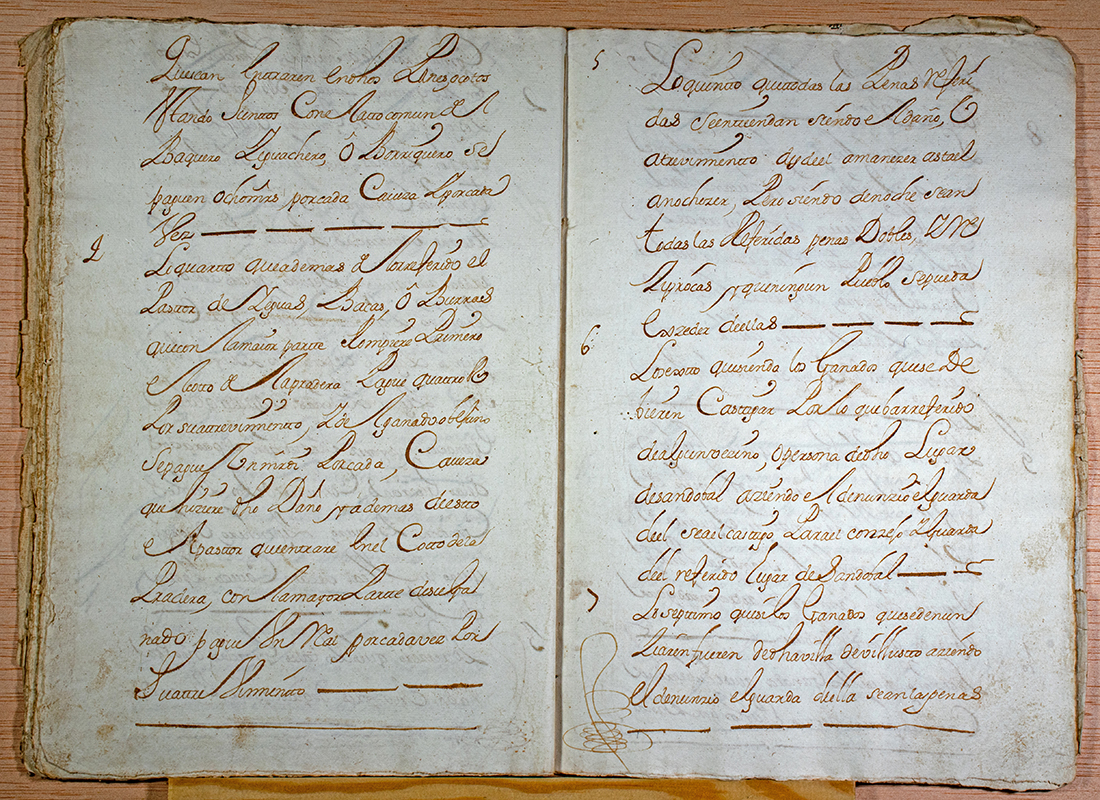 Quesean Entraren en dhos Pines gotos
stando Juntos Con el atto comun de el
Baquero Yeguachero, ô Borriquero se
paguen ocho mrs por cada Caveza Y por cada
Vez
4
Lo quartto que ademas de lo rreferido el
Pasttor de Yeguas Bacas, ô Burras
que con la maior partte Rompiere Primero
el Cotto de la pradera Pague quattro Rs
Por su attrevimientto, Y de el ganado obejuno
se pague Un mrdi Por cada, Caveza
que hiziere dho Daño y ademas de estto
el pasttor que enttrare En el Cotto de la
Pradera, con la mayor Partte de su Ga
nado pague Un Real por cada vez Por
su attrevimientto
5
Lo quintto que ttodas las Penas Referi
das se enttiendan siendo el daño, O
attrevimientto dysdeel amanezer astael
anochezer, Pero siendo de noche sean
ttodas las Referidas penas Dobles Y Re
ziprocas y que ningun Pueblo se pueda
Exszeder de ellas
6
Lo sestto que siendo los Ganados que se De
bieren Casttigar Por lo que ba rreferido
de algun vezino, o persona de dho Lugar
de sandobal aziendo el denunzio el guarda
del sea el casttigo Para el conzejo Y guarda
del referido lugar de Sandobal
7
Lo septtimo que si los Ganados que se denun
ziaren fueren de dha villa de villustto aziendo
el denunzio el guarda de ella sean las penas